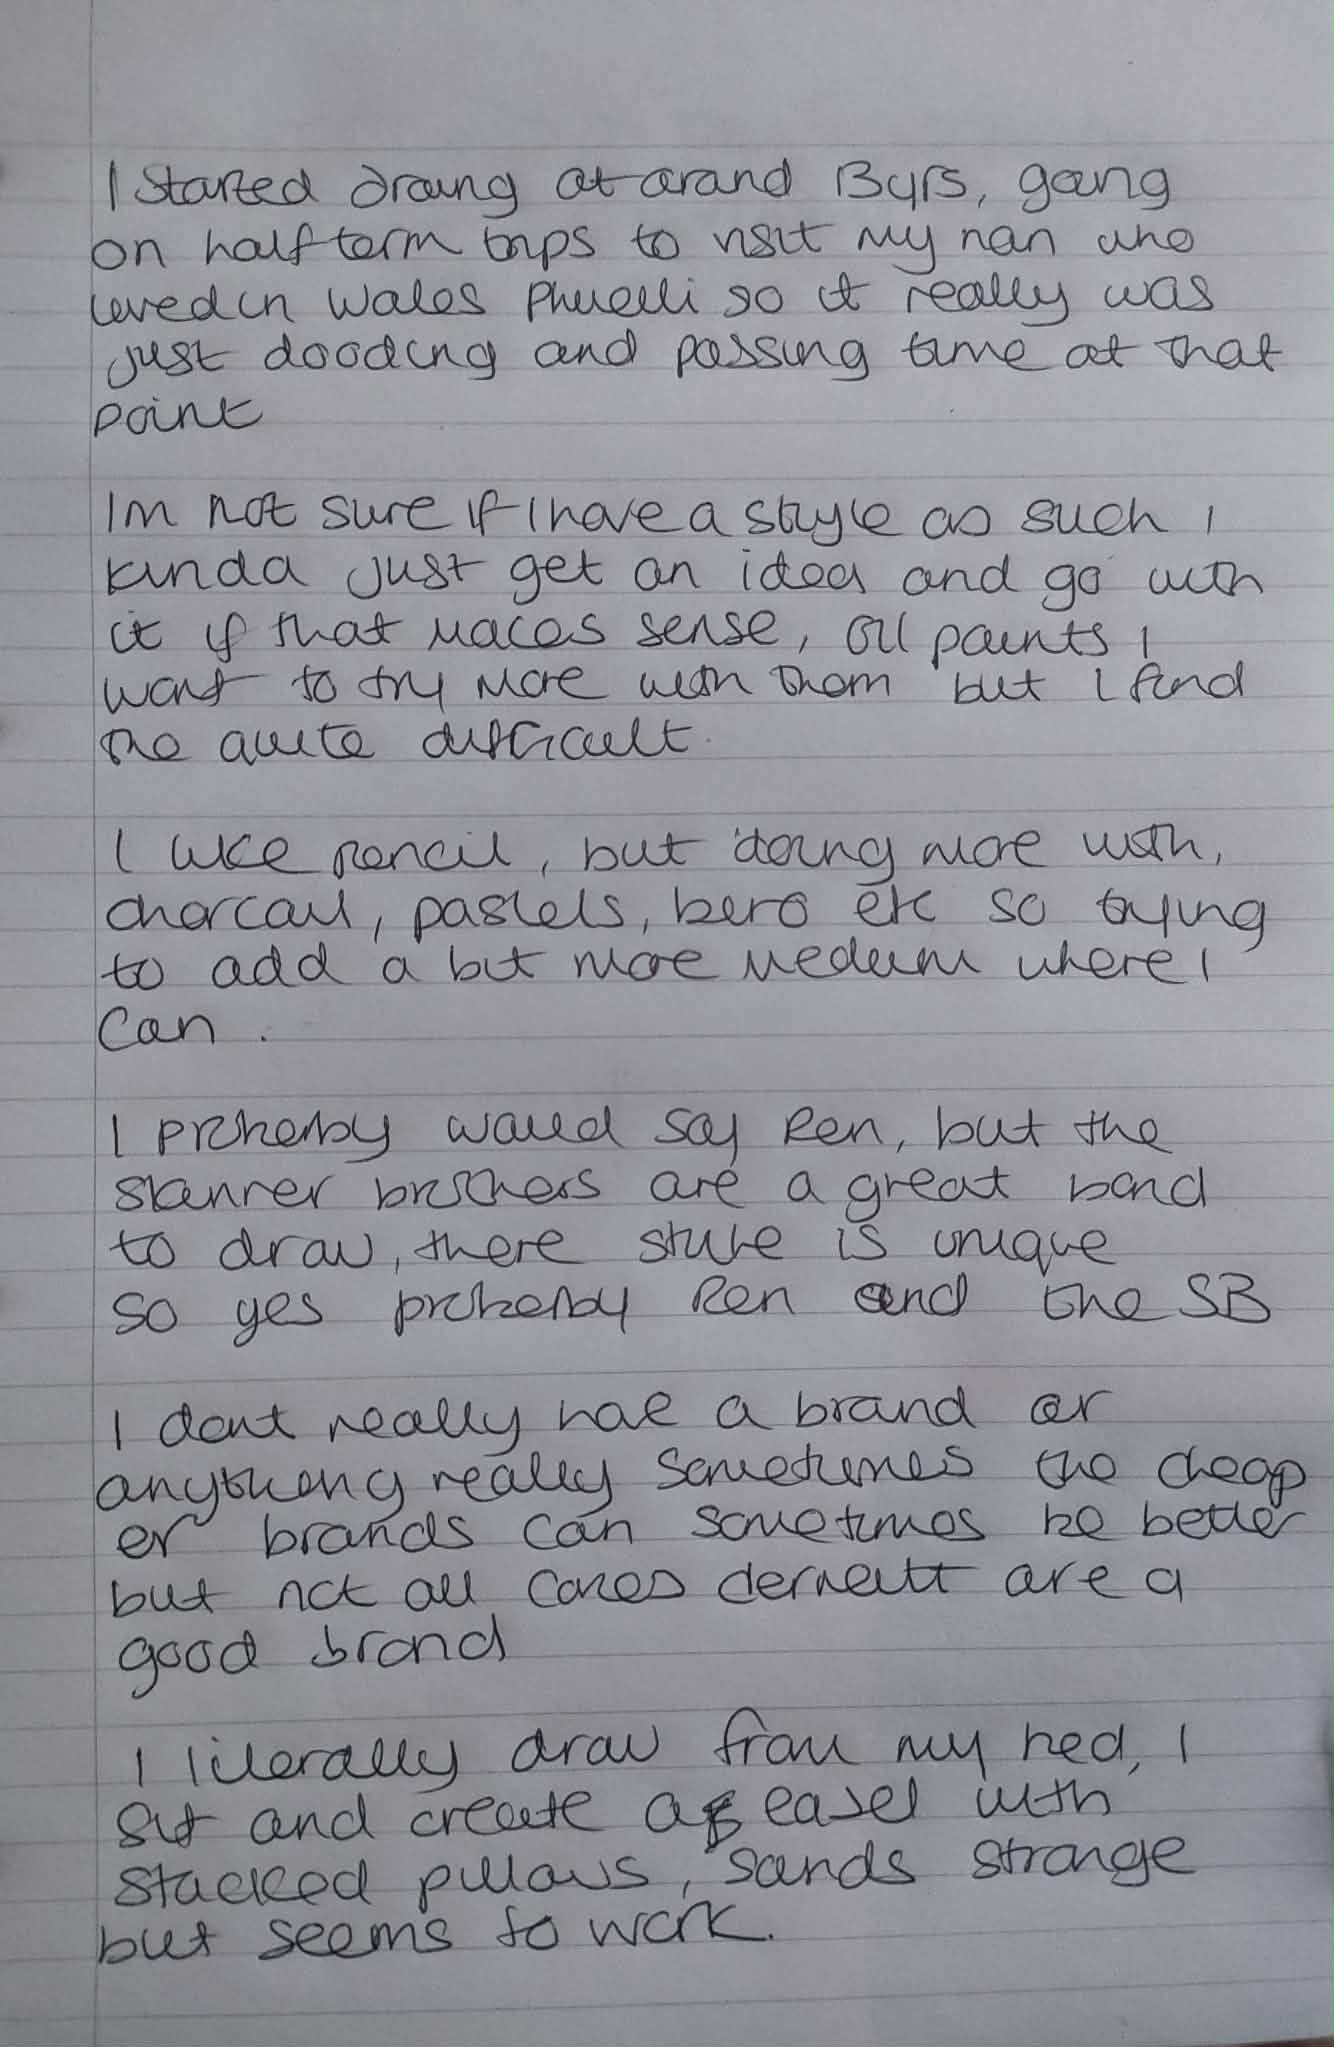 I started drawing at around 13yrs, going
on half term trips to visit my nan who
lived in Wales Phwelli so it really was
just dooding and passing time at that
point
Im not sure if I have a style as such I
kinda just get an idea and go with
it if that makes sense, oil paints I
want to try more with them but I find
the quite difficult.
I like pencil, but doing more with,
charcaul, pastels, biro etc so trying
to add a bit more medium where I
can.
I probably would say Ren, but the
skinner brothers are a great band
to draw, there style is unique
so yes probably Ren and the SB
I dont really have a brand or
anything really sometimes the cheap
er brands can sometimes be better
but not all cases derwent are a
good brand
I literally draw from my bed, I
sit and create a easel with
stacked pillows, sounds strange
but seems to work.